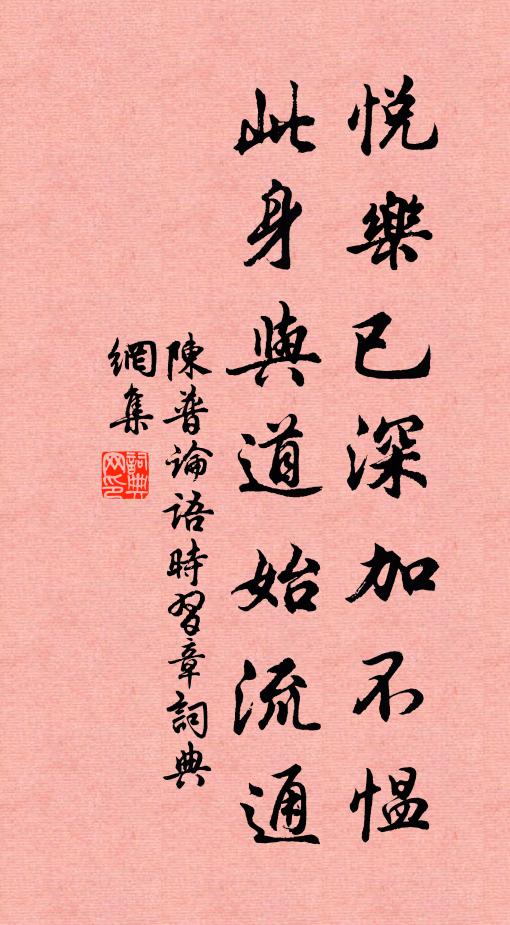 悅樂已深加不慍
此身與道始流通
陳普論語時習章詞典
網集
詞典
网印